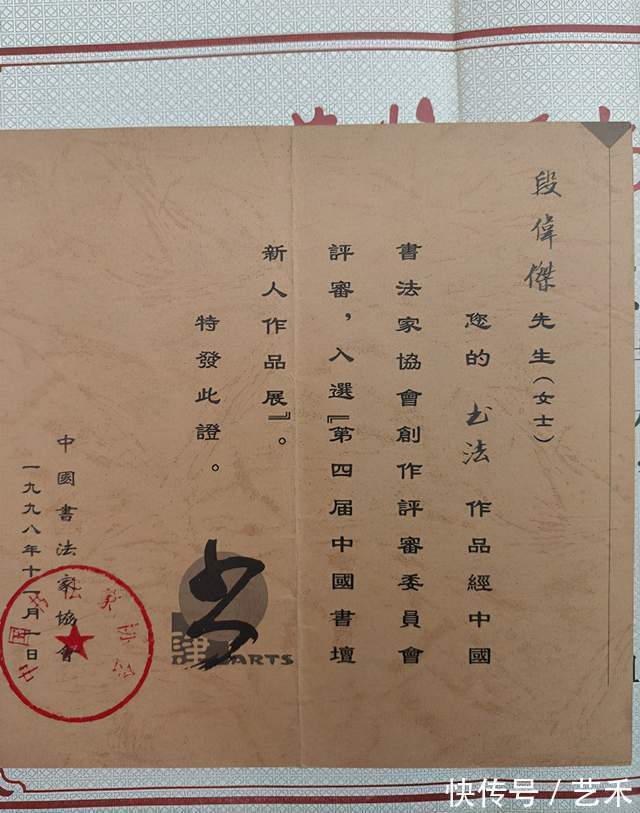 段偉傑先生(女士)
您的书法作品經中國
書法家協會創作評審委員會
評審，入選『第四届中國書壇
新人作品展』。
特發此證。
中國書法家協會
一九九八年十一月一日
中国书法家协会
ARTS
快传号 / 艺禾